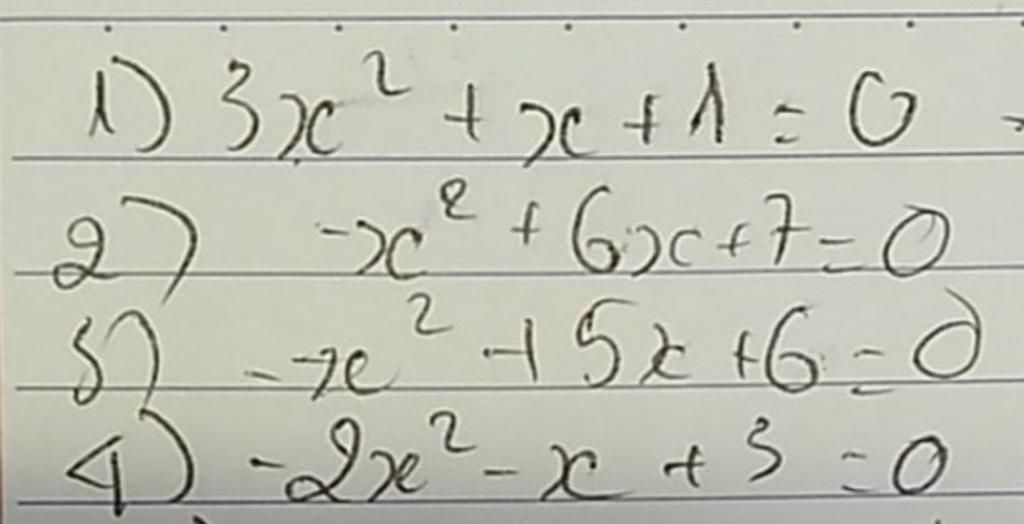 1) 3x² + x + 1 = 0
2) -x² + 6x + 7 = 0
3) -x² + 5x + 6 = 0
4) -2x² - x + 3 = 0